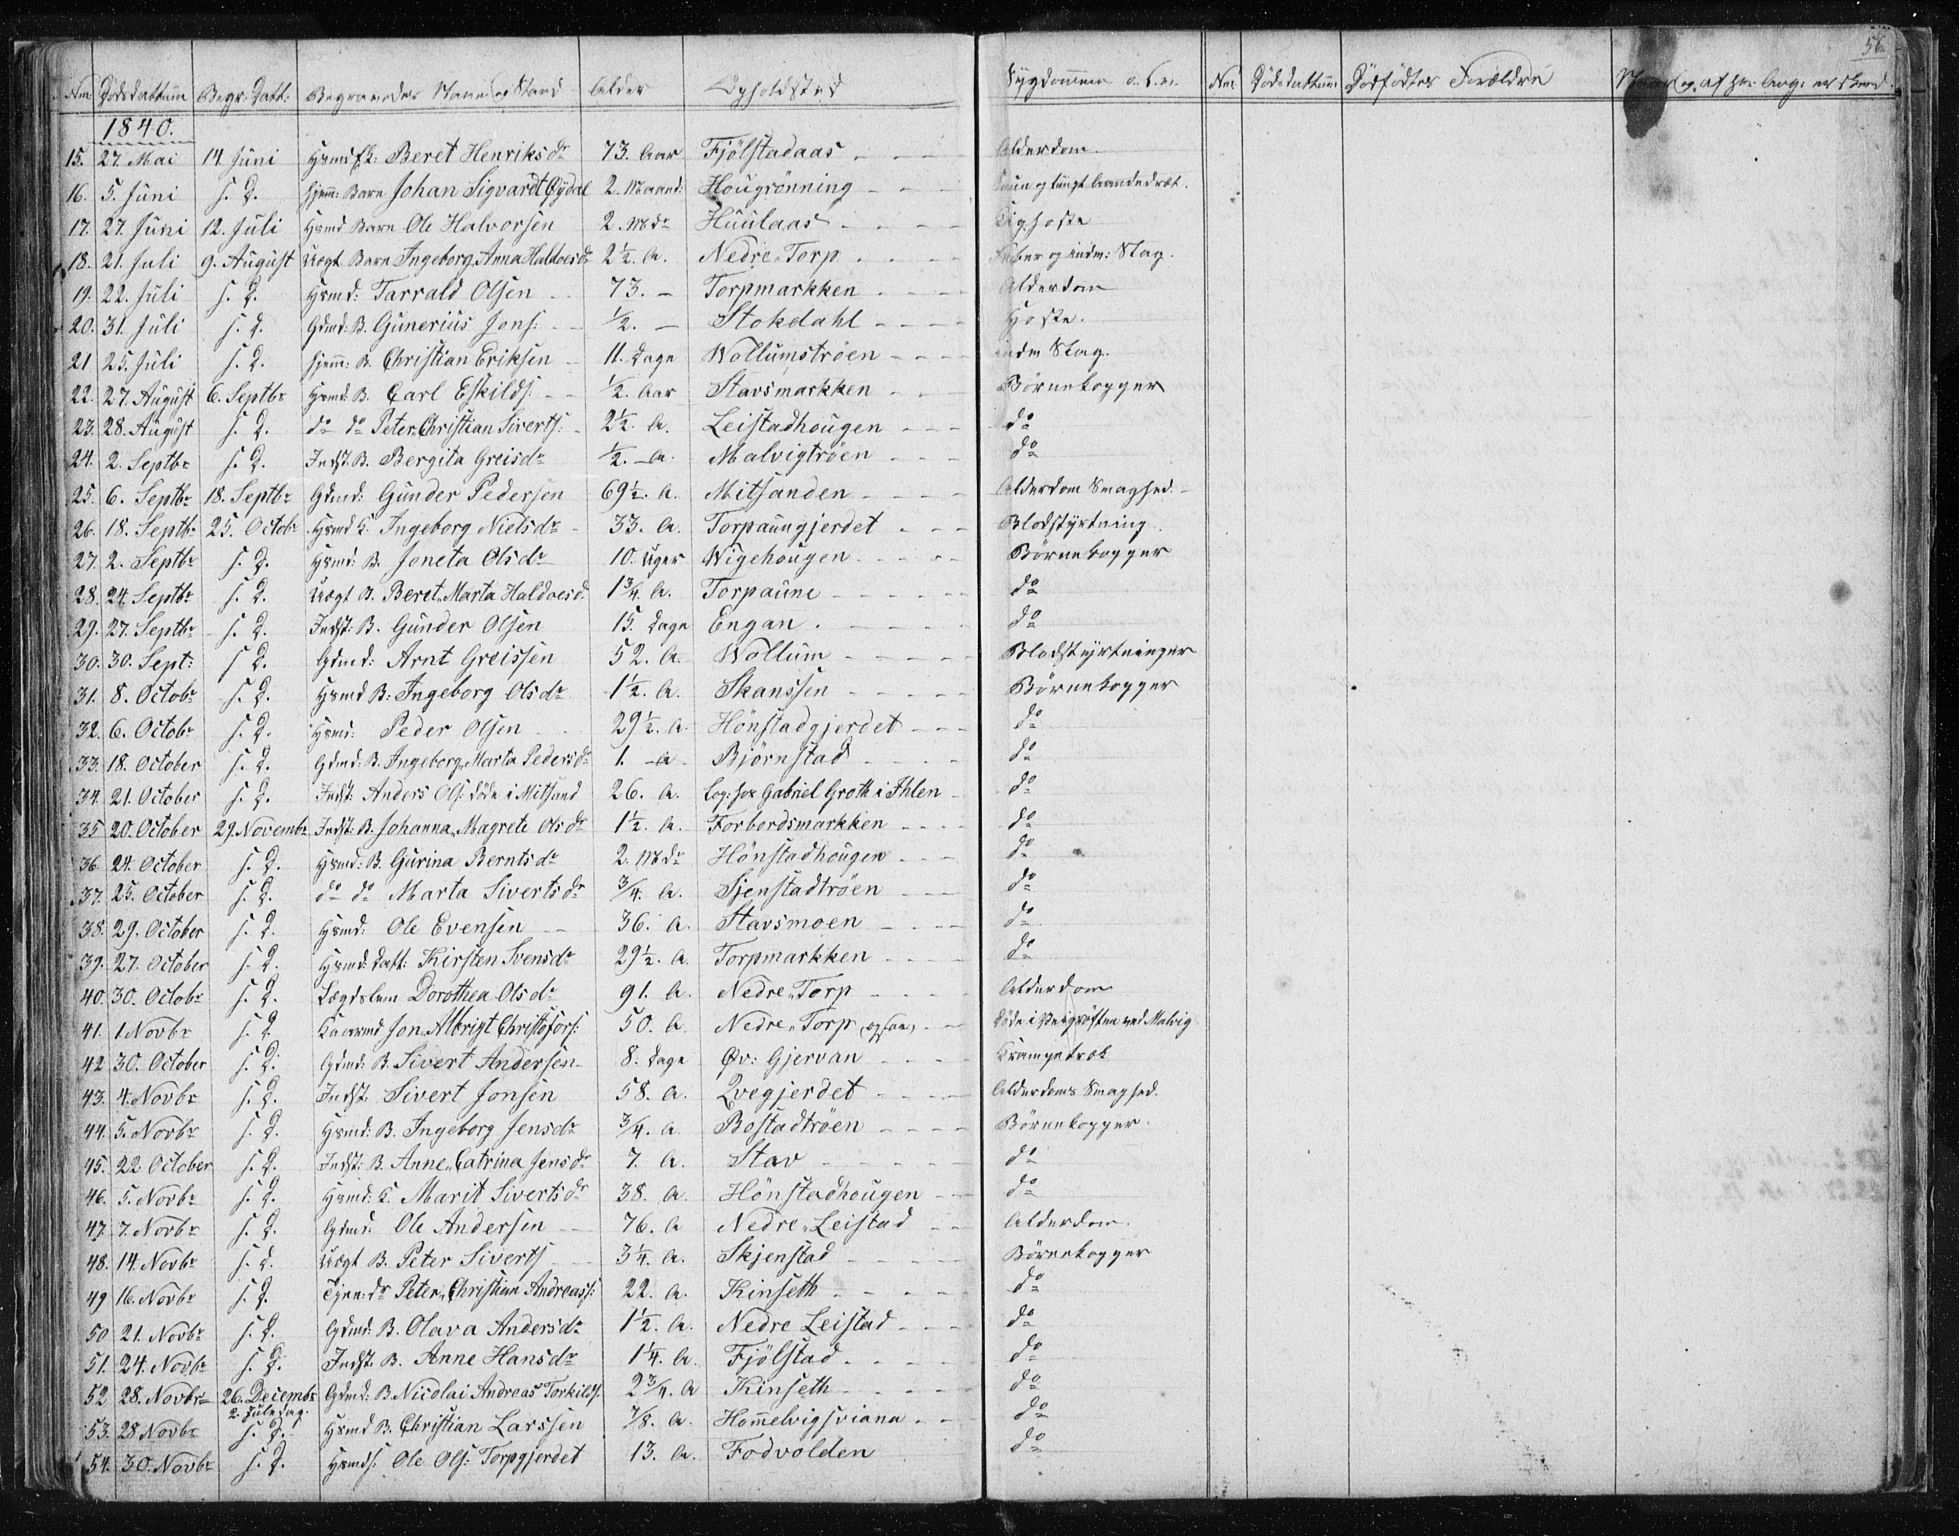 56
Nm Dødsdattum Begr: Datt: Begravedes Navn og Stand Alder Opholdsted Sygdommen o.s.v. Nm: Dødsdattum Dødfødtes Forældre
1840.
15. 27. Mai 14. Juni Huusfk: Beret Henriksdr 73. Aar Fjölstadaas Alderdom.
16. 5. Juni s. D. Barn Johan Sigvardt Öydal 2. Maand: Hougrönning og tungt Aandedræt.
17. 27. Juni 12. Juli Huusmd Barn Ole Halvorsen 2. Mdr Huulaas Kighoste
18. 21. Juli 9. August Uægt Barn Ingeborg Anna Haldoesdr 2½. A. Nedre Torp Feber og indv: Slag.
19. 22. Juli s. D. Husmd: Tarrald Olsen 73. – Torpmarkken Alderdom
20. 31. Juli s. D. Gdmd: B. Gunerius Jons: ½. – Stokdahl Hoste.
21 25. Juli s. D. B. Christian Eriksen 11. Dage Wollumströen indv Slag.
22. 27. August 6. Septbr Husmd: B. Carl Eskilds: ½. Aar Stavsmarkken Börnekopper
23. 28. August s. D. do do Peter Christian Siverts: 2½. A. Leistadhougen do
24. 2. Septbr s. D. Indst. B. Bergita Greisdr ½. – A. Malvigtröen do
25. 6. Septbr 18. Septbr Gdmd: Gunder Pedersen 69½. A. Mitsanden Alderdom Svaghed.
26. 18. Septbr 25. Octobr Husmd K. Ingeborg Nielsdr 33. A. Torpaungjerdet Blodstyrtning
27. 2. Septbr s. D. Husmd: B. Joneta Olsdr 10. Uger Wigehougen Börnekopper
28. 24. Septbr s. D. Uægt B. Beret Marta Haldoesd. 1¾. A. Torpaune do
29. 27. Septbr s. D. Indst: B. Gunder Olsen 15. Dage Engan do
30. 30. Sept: s. D. Gdmd: Arnt Greissen 52. A. Wollum Blodstyrtninger
31. 8. Octobr s. D. Husmd B: Ingeborg Olsdr 1½. A. Skanssen Börnekopper
32. 6. Octobr s. D. Husmd: Peder Olsen 29½. A. Hönstadgjerdet do
33. 18. October s. D. Gdmd: B. Ingeborg Marta Pedersdr 1. – A Björnstad do
34. 21. October s. D. Indst: Anders Ols: döde i Mitsand 26. A. Log: hos Gabriel Groth i Ihlen do
35 20. October 29. Novembr Indst: B. Johanna Magrete Olsdr 1½. A. Forbordsmarkken do
36. 24. October s. D. Husmd: B Gurina Berntsdr 2. Mdr Hönstadhougen do
37. 25. October s. D. do do Marta Sivertsdr ¾. A. Sjenstadtröen do
38. 29. October s. D. Husmd: Ole Evensen 36. A. Stavsmoen do
39. 27. October s. D. Husmd: Datt: Kirsten Svensdr 29½. A. Torpmarkken do
40. 30. Octobr s. D. Lægdslem Dorothea Olsdr 91. A. Nedre Torp Alderdom
41. 1. Novbr s. D. Kaarmd Jon Albrigt Christofors: 50. A. Nedre Torp döde i Veigröften ved Malvig
42 30. October s. D. Gdmd: B. Sivert Andersen 8. Dage Öv: Gjervan Krampetræk
43. 4. Novbr s. D. Indst. Sivert Jonsen 58. A. Qvegjerdet Alderdoms Svaghed.
44. 5. Novbr s. D. Husmd: B. Ingeborg Jensdr ¾. A Bostadtröen Börnekopper.
45. 22. October s. D. Indst: B. Anne Catrina Jensdr 7. A. Stav do
46. 5. Novbr s. D. Husmd: K. Marit Sivertsdr 38. A. Hönstadhougen do
47. 7. Novbr s. D. Gdmd: Ole Andersen 76. A Nedre Leistad Alderdom.
48. 14. Novbr s. D. Uægt B. Peter Siverts 3¼. A. Skjenstad Börnekopper
49 16. Novbr s. D. Tjen: dr Peter Christian Andreass: 22. A. Kinseth do
50 21. Novbr s. D. Gdmd: B. Olava Andersdr 1½. A. Nedre Leistad do
51. 24. Novbr s. D. Indst. B. Anne Hansdr 1¼. A. Fjölstad do
52 28. Novbr 26. Decembr Gdmd: B Nicolai Andreas Torkilds: 2¾. A Kinseth do
2. Juledag.
53. 28 Novbr s. D. Husmd B. Christian Larssen ⅞. A. Hommelvigsviana do
54. 30. Novbr s. D. Husmds: Ole Ols: Torpgjerdet 13. A. Fodvolden do